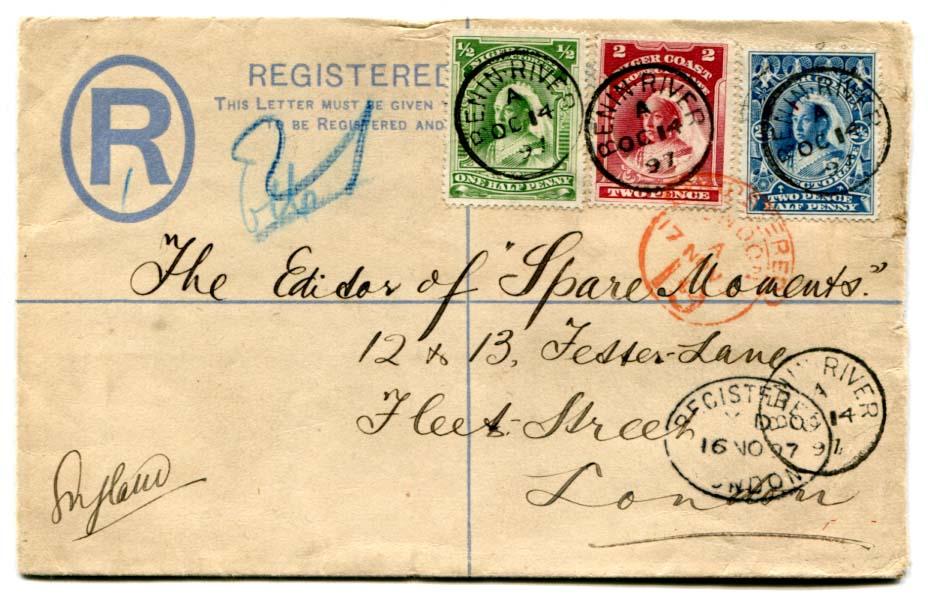 R
REGISTERED
THIS LETTER MUST BE GIVEN
TO BE REGISTERED AND
1/2 1/2
NIGER
ONE HALF PENNY
BENIN RIVER
A
OC 14
97
2 2
NIGER COAST
TWO PENCE
BENIN RIVER
A
OC 14
97
TWO PENCE
HALF PENNY
BENIN RIVER
A
OC 14
97
REGISTERED
LONDON
A
17 NOV
The Editor of "Spare Moments."
12 & 13, Fetter-Lane
Fleet-Street
London
England
BENIN RIVER
A
OC 14
97
REGISTERED
16 NO 97
LONDON